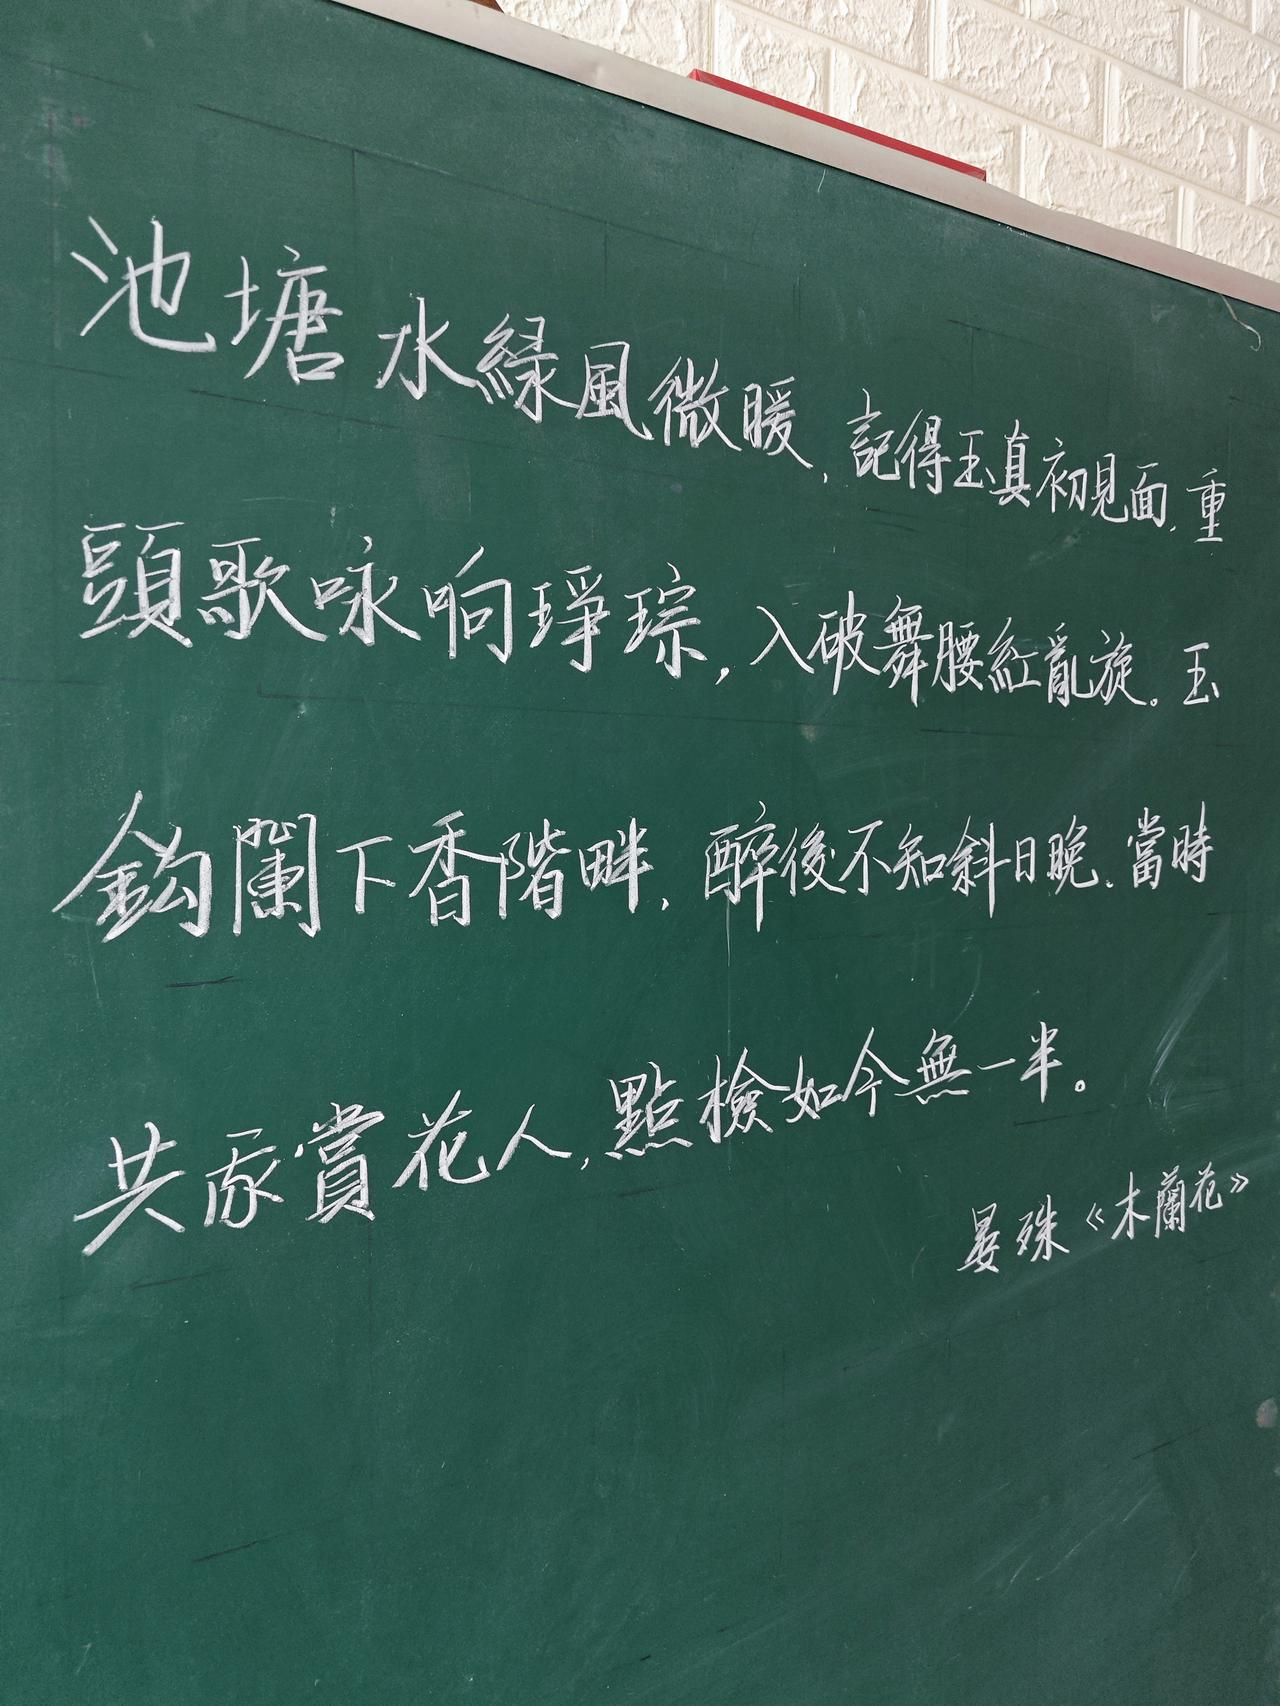 池塘水緑風微暖，記得玉真初見面，重
頭歌咏响琤琮，入破舞腰紅亂旋。玉
鈎闌下香階畔，醉後不知斜日晚，當時
共我賞花人，點檢如今無一半。
晏殊《木蘭花》